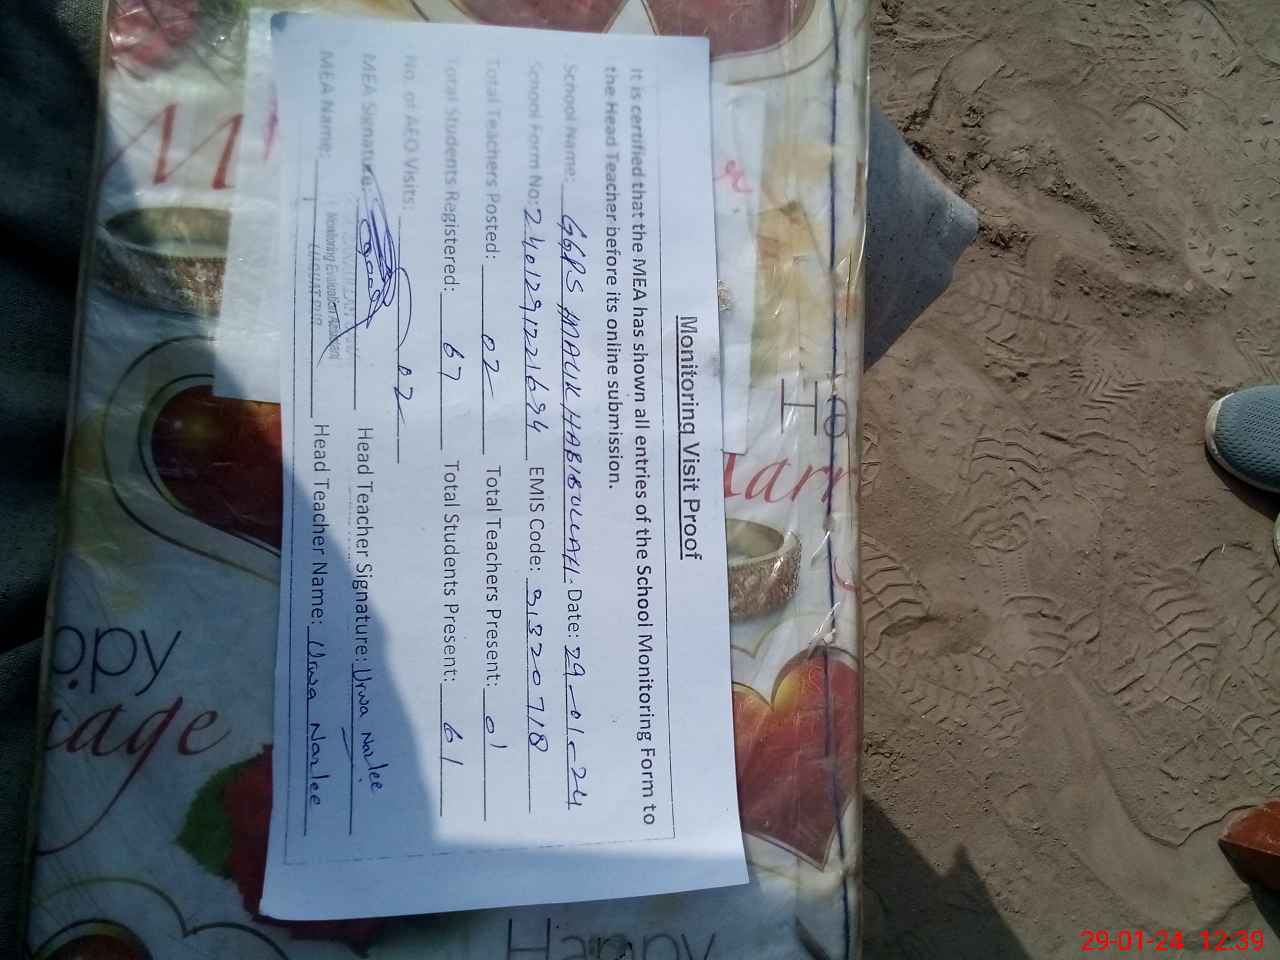 Monitoring Visit Proof
It is certified that the MEA has shown all entries of the School Monitoring Form to
the Head Teacher before its online submission.
School Name: GGPS MALIK HABIBULLAH. Date: 29-01-24
School Form No: 2401291221694 EMIS Code: 31320718
Total Teachers Posted: 02 Total Teachers Present: 01
Total Students Registered: 67 Total Students Present: 61
No. of AEO Visits: 02
MEA Signature: Head Teacher Signature: Urwa Nazlee
Monitoring Evaluation Assistant
MEA Name: Head Teacher Name: Urwa Nazlee
Happy
29-01-24 12:39